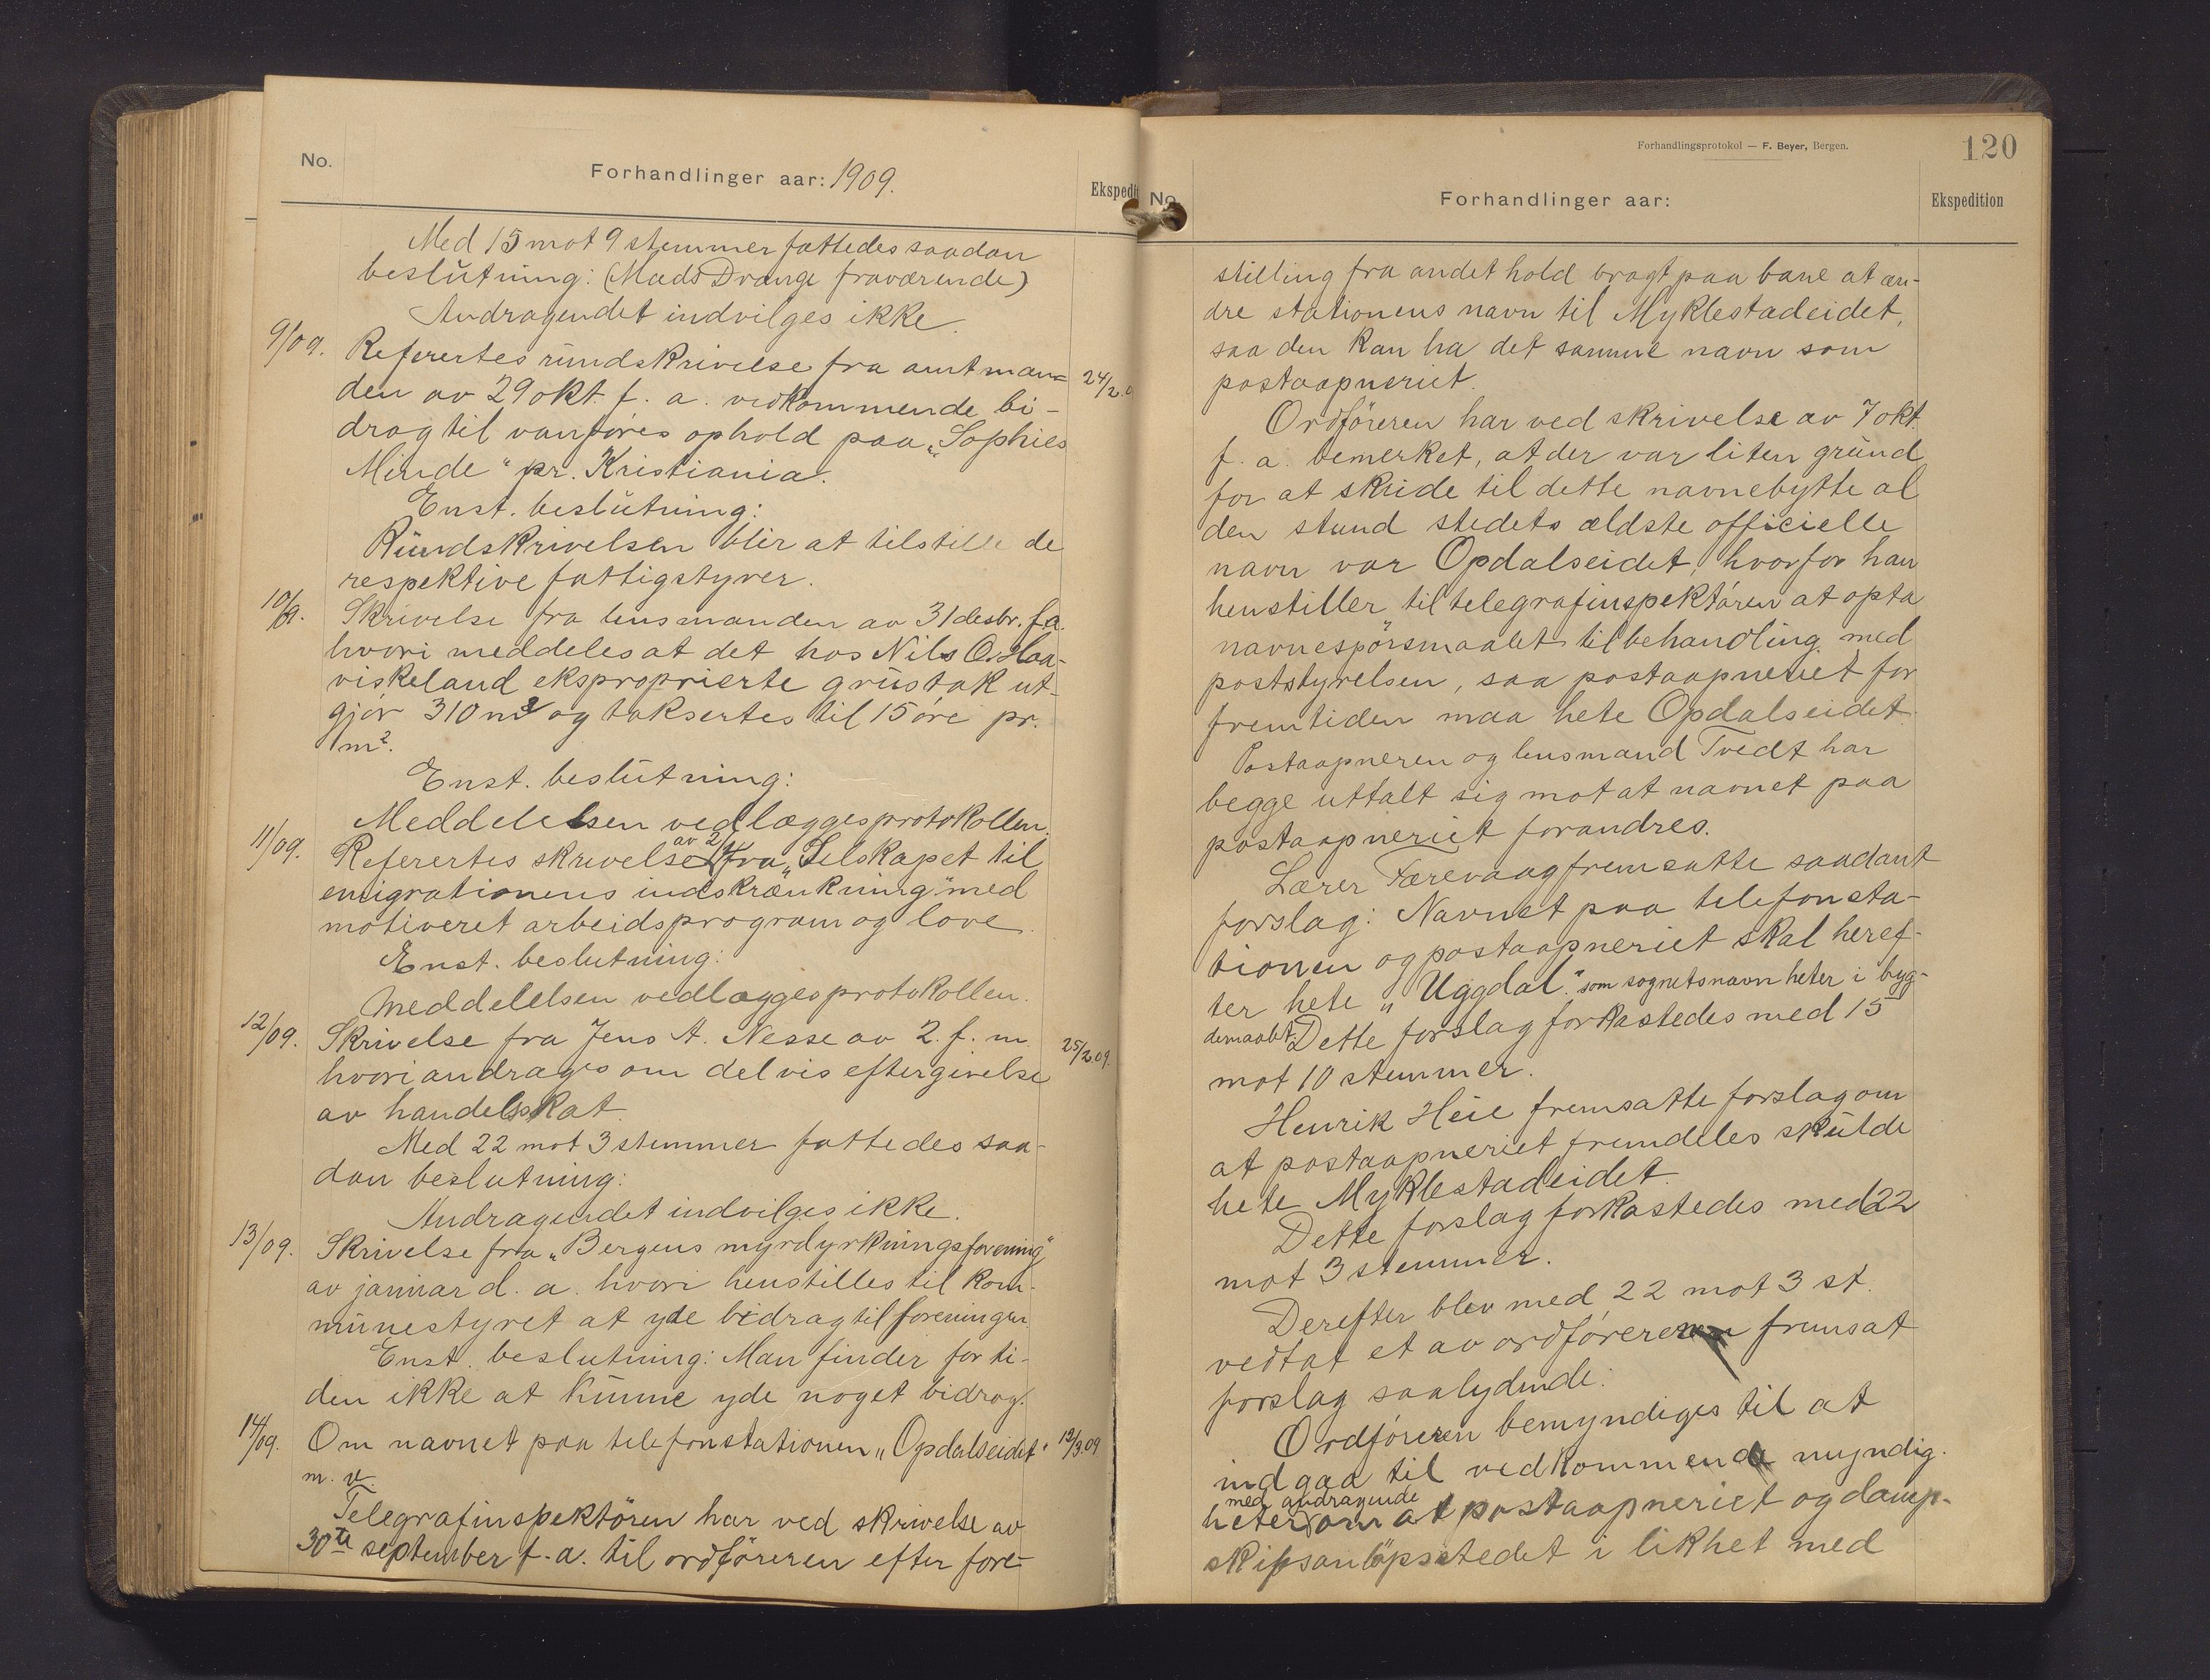 No.
Forhandlinger aar: 1909.
Ekspedit
Med 15 mot 9 stemmer fattedes saadan
beslutning: (Mads Drange fraværende)
Andragendet indvilges ikke.
9/09. Referertes rundskrivelse fra amtman=
den av 29 okt. f. a. vedkommende bi-
drag til vanföres ophold paa „Sophies
Minde" pr. Kristiania.
24/2.0
Enst. beslutning:
Rundskrivelsen blir at tilstille de
respektive fattigstyrer.
10/9. Skrivelse fra lensmanden av 31 desbr. f.a.
hvori meddeles at det hos Nils O. Haa-
viskeland ekspropprierte grustak ut-
gjör 310 m² og taksertes til 15 öre pr.
m².
Enst. beslutning:
Meddelelsen vedlægges protokollen.
11/09. Referertes skrivelse av 2/1 fra „Selskapet til
emigrationens indskrænkning" med
motiveret arbeidsprogram og love.
Enst. beslutning:
Meddelelsen vedlægges protokollen.
12/09. Skrivelse fra Jens A. Nesse av 2. f. m.
hvori andrages om delvis eftergivelse
av handelsskat.
25/2.09.
Med 22 mot 3 stemmer fattedes saa-
dan beslutning:
Andragendet indvilges ikke.
13/09. Skrivelse fra „Bergens myrdyrkningsforening"
av januar d. a. hvori henstilles til kom-
munestyret at yde bidrag til foreningen.
Enst. beslutning: Man finder for ti-
den ikke at kunne yde noget bidrag.
14/09. Om navnet paa telefonstationen „Opdalseidet"
m. v.
12/3.09
Telegrafinspektören har ved skrivelse av
30te september f. a. til ordföreren efter fore-
Forhandlingsprotokol — F. Beyer, Bergen.
120
No.
Forhandlinger aar:
Ekspedition
stilling fra andet hold bragt paa bane at æn-
dre stationens navn til Myklestadeidet,
saa den kan ha det samme navn som
postaapneriet.
Ordföreren har ved skrivelse av 7 okt.
f. a. bemerket, at der var liten grund
for at skride til dette navnebytte al
den stund stedets ældste officielle
navn var Opdalseidet, hvorfor han
henstiller til telegrafinspektören at opta
navnespörsmaalet til behandling med
poststyrelsen, saa postaapneriet for
fremtiden maa hete Opdalseidet.
Postaapneren og lensmand Tvedt har
begge uttalt sig mot at navnet paa
postaapneriet forandres.
Lærer Færevaag fremsatte saadant
forslag: Navnet paa telefonsta-
tionen og postaapneriet skal heref-
ter hete „Uggdal" som sognets navn heter i byg-
demaalet. Dette forslag forkastedes med 15
mot 10 stemmer.
Henrik Heie fremsatte forslag om
at postaapneriet fremdeles skulde
hete Myklestadeidet.
Dette forslag forkastedes med 22
mot 3 stemmer.
Derefter blev med 22 mot 3 st.
vedtat et av ordföreren fremsat
forslag saalydende:
Ordföreren bemyndiges til at
indgaa til vedkommende myndig-
heter med andragende om at postaapneriet og damp-
skipsanlöpsstedet i likhet med